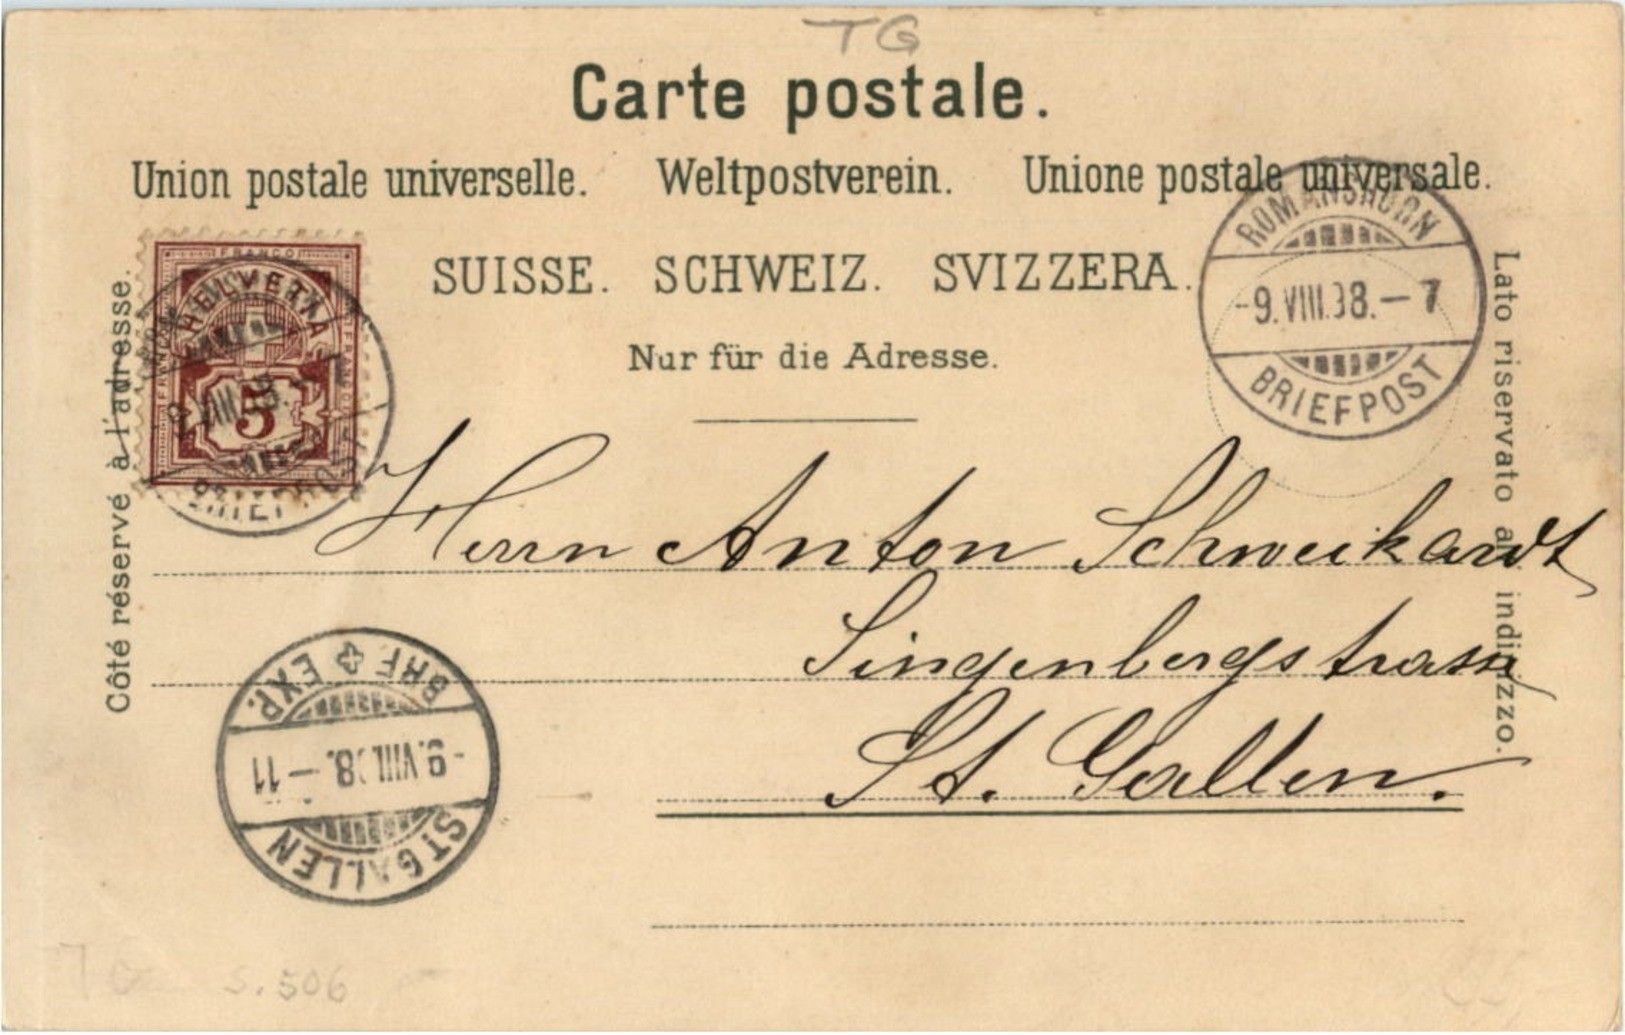 TG
Carte postale.
Union postale universelle. Weltpostverein. Unione postale universale.
SUISSE. SCHWEIZ. SVIZZERA.
Nur für die Adresse.
Côté réservé à l'adresse.
Lato riservato all' indirizzo.
FRANCO
HELVETIA
5
BRIEFPOST
ROMANSHORN
-9.VIII.98.-7
BRIEFPOST
Herrn Anton Schweikardt
Singenbergstrasse
St. Gallen.
ST. GALLEN
-9.VIII.98.-11
BRF. EXP.
S. 506